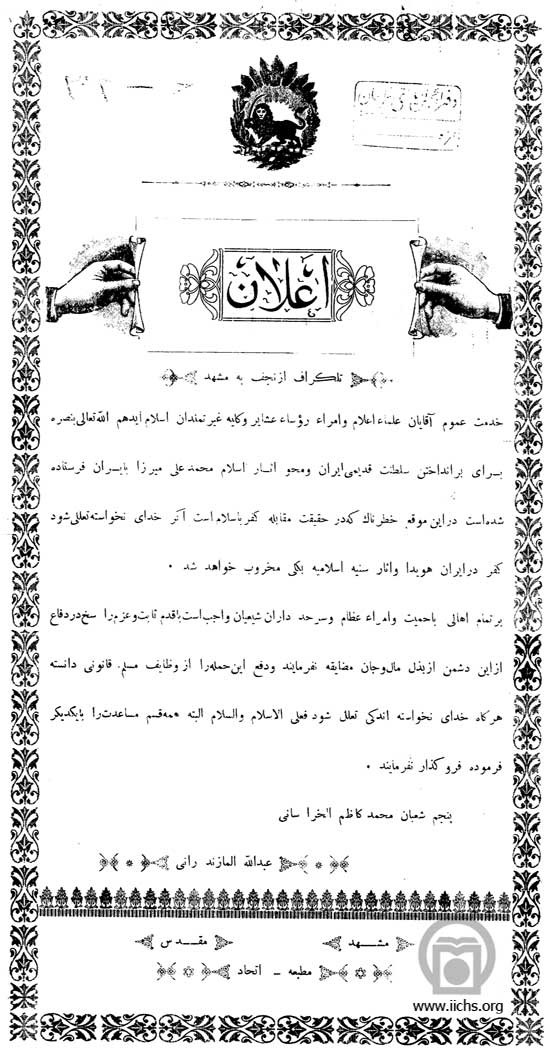 اعلان
تلگراف از نجف به مشهد
خدمت عموم آقایان علماء اعلام وامراء رؤساء عشایر وکلیه غیرتمندان اسلام ایدهم الله تعالی بنصره
بـرای برانداختن سلطنت قدیمی ایران ومحو آثـار اسلام محمدعلی میرزا بایـران فرستاده
شده است دراین موقع خطرناك که در حقیقت مقابله کفر باسلام است اگر خدای نخواسته تعللی شود
کفر درایران هویدا وآثار سنیه اسلامیه بکلی مخروب خواهد شد .
برتمام اهالی باحمیت وامراء عظام وسرحد داران شیعیان واجب است با قدم ثابت وعزم راسخ در دفاع
ازاین دشمن ازبذل مال وجان مضایقه نفرمایند ودفع این حمله را از وظایف مسلم قانونی دانسته
هرگاه خدای نخواسته اندکی تعلل شود فعلی الاسلام والسلام البته همه قسم مساعدت را بایکدیگر
فرموده فروگذار نفرمایند .
پنجم شعبان محمد کاظم الخراسانی
عبدالله المازندرانی
مشـهد مقـدس
مطبعه ـ اتحاد
www.iichs.org